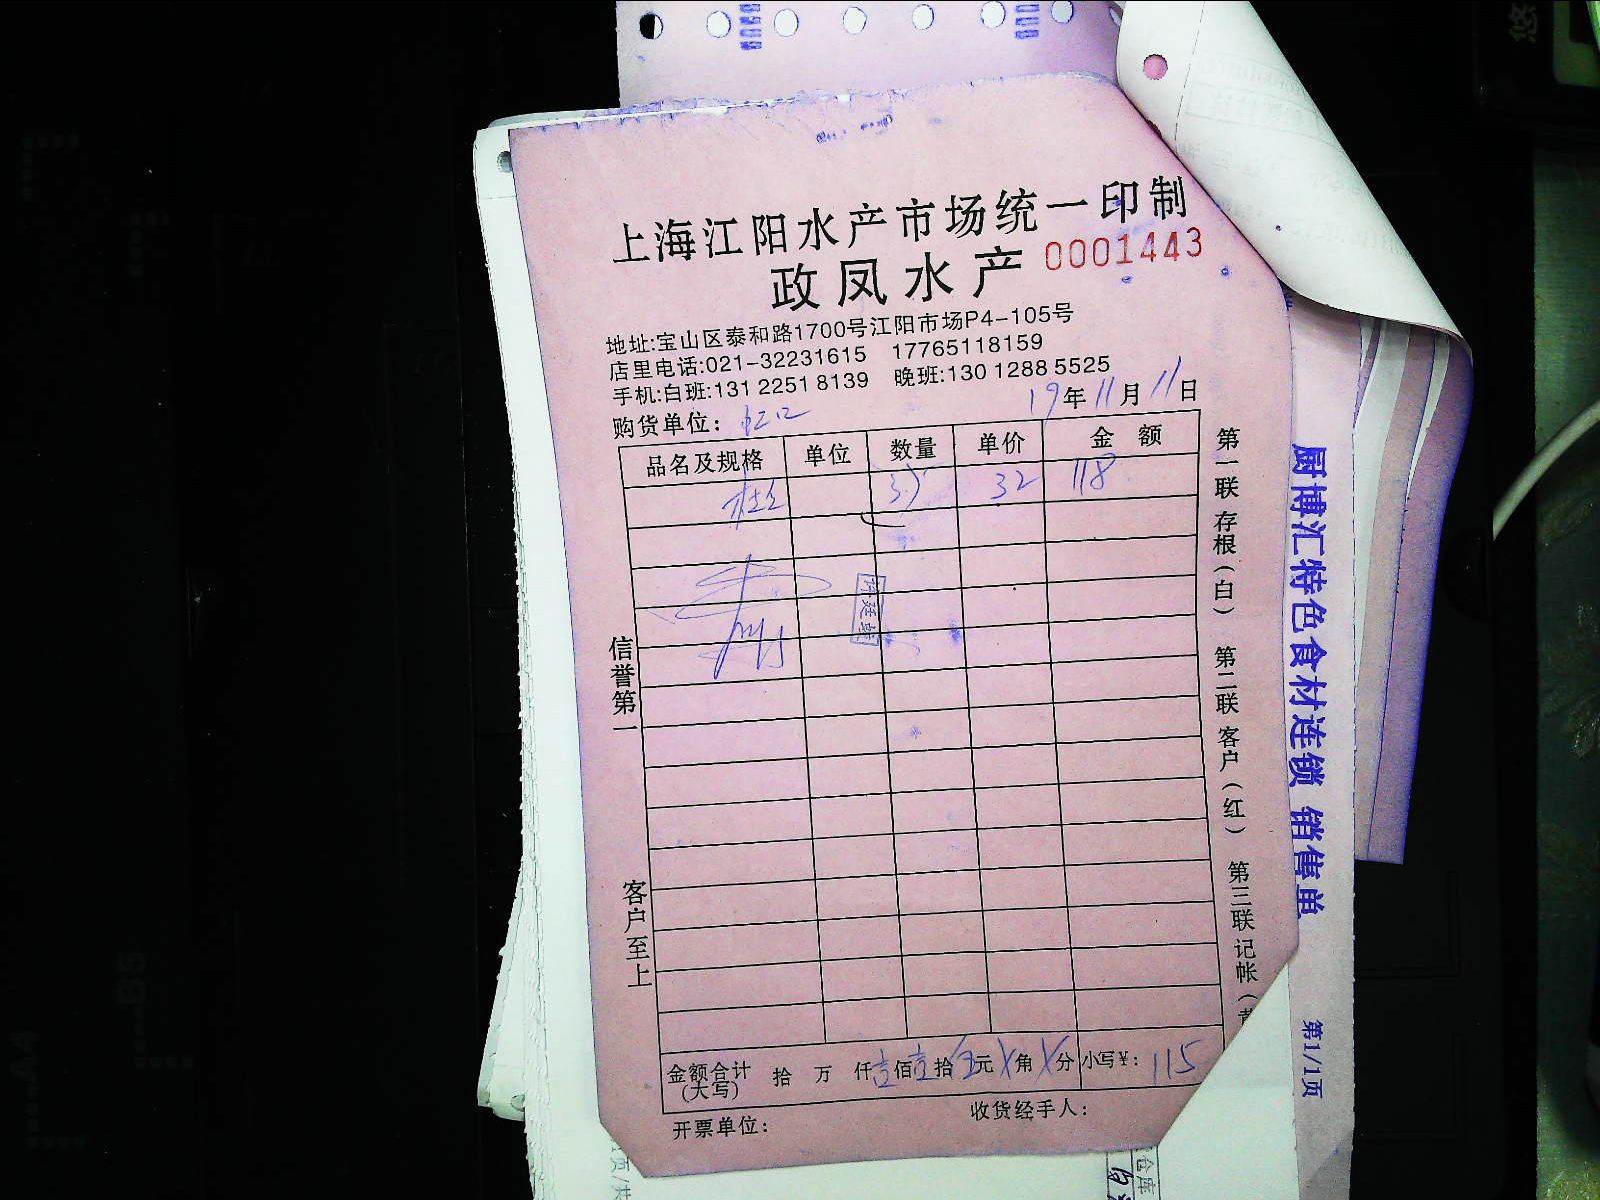 上海江阳水产市场统一印制
政凤水产 0001443
地址:宝山区泰和路1700号江阳市场P4-105号
店里电话:021-32231615 17765118159
手机:白班:131 2251 8139 晚班:130 1288 5525
购货单位: 虹口 19年11月11日
品名及规格 单位 数量 单价 金额
32 118
信誉第一
客户至上
第一联存根(白) 第二联客户(红) 第三联记帐(黄
金额合计(大写) 拾 万 仟壹佰壹拾伍元X角X分 小写¥: 115
开票单位: 收货经手人:
厨博汇特色食材连锁 销售单
第1/1页
仓库